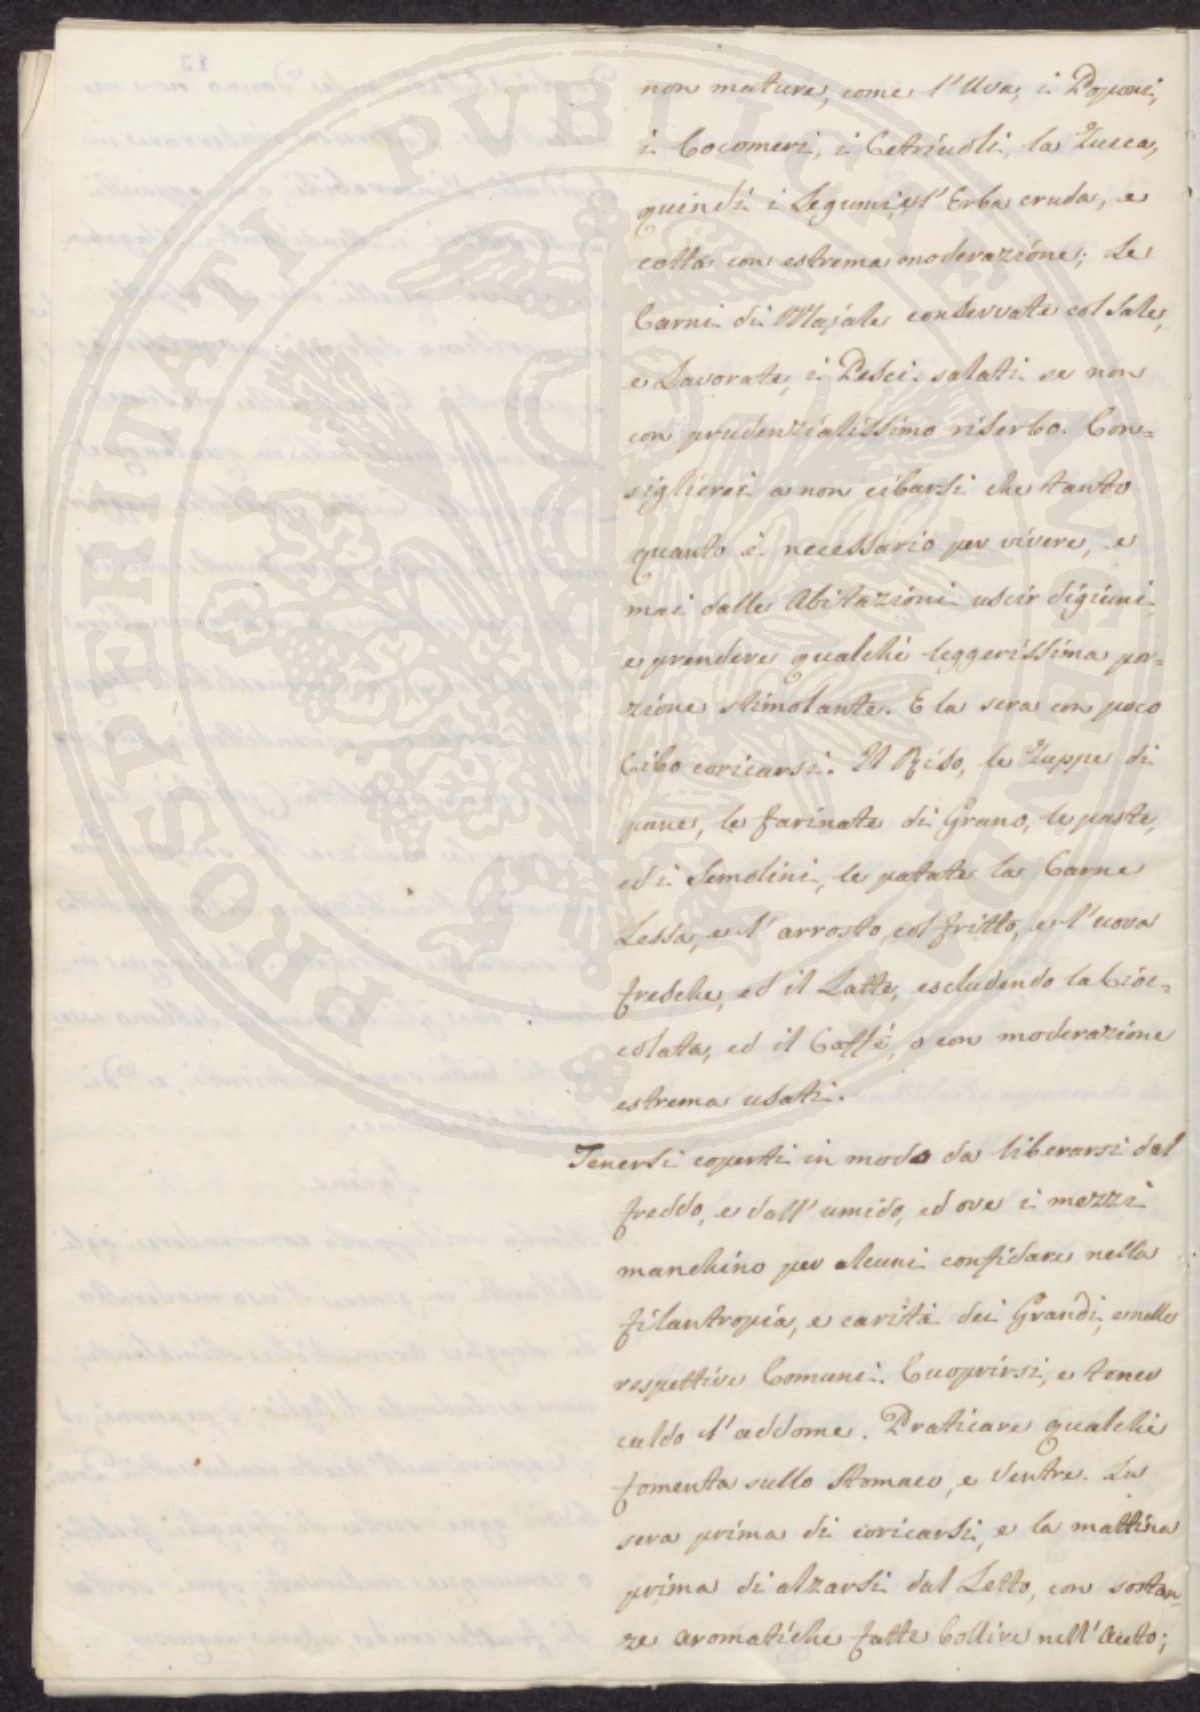 non mature, come l'Uva, i Poponi,
i Cocomeri, i Cetriuoli, la Zucca,
quindi i Legumi, e l'Erba cruda, e
cotta con estrema moderazione; Le
Carni di Majale conservate col Sale,
e Lavorate, i Pesci salati se non
con prudenzialissimo riserbo. Con=
siglierei a non cibarsi che tanto
quanto è necessario per vivere, e
mai dalle Abitazioni uscir digiuni,
e prendere qualche leggerissima por=
zione stimolante. E la sera con poco
Cibo coricarsi. Il Riso, le Zuppe di
pane, le farinate di Grano, le paste,
ed i Semolini, le patate la Carne
Lessa, e l'arrosto, col fritto, e l'uova
fresche, ed il Latte, escludendo la Cioc=
colata, ed il Caffé, o con moderazione
estrema usati.
Tenersi coperti in modo da liberarsi dal
freddo, e dall'umido, ed ove i mezzi
manchino per alcuni confidare nella
filantropia, e carità dei Grandi, e nelle
respettive Comuni. Cuoprirsi, e tener
caldo l'addome. Praticare qualche
fomenta sullo Stomaco, e Ventre. La
sera prima di coricarsi, e la mattina
prima di alzarsi dal Letto, con sostan=
ze aromatiche fatte bollire nell'Aceto;
PROSPERITATI PUBLICAE AUGENDAE